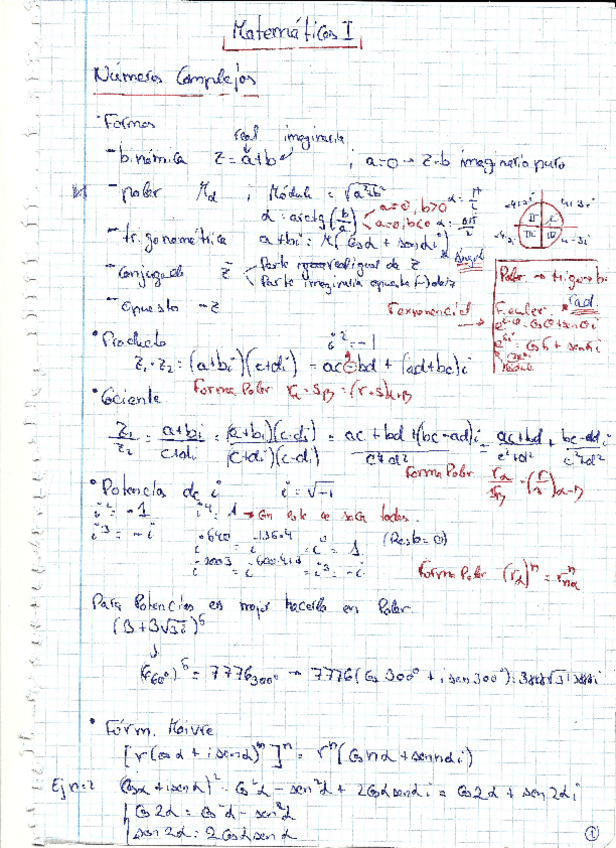 Matemáticas I
Números Complejos
• Formas
real imaginaria
- binómica Z = a+bi ; a=0 → Z=bi imaginario puro
- polar r_α ; Módulo = √a²+b²
α = arctg (b/a) a=0, b>0 α = π/2
a=0, b<0 α = 3π/2
- trigonométrica a+bi = r(cos α + sen α i)
- Conjugado Z̄ Parte real igual de Z
Parte imaginaria opuesta (-) de Z
- opuesto -Z
Polar → trigo → bi
F. exponencial → F. euler * rad.
• Producto i² = -1
Z₁·Z₂ = (a+bi)(c+di) = ac - bd + (ad+bc)i
Forma Polar r_α · s_β = (r·s)_α+β
• Cociente
Z₁/Z₂ = a+bi/c+di = (a+bi)(c-di)/(c+di)(c-di) = ac+bd+(bc-ad)i/c²+d² = ac+bd/c²+d² + bc-ad i/c²+d²
Forma Polar r_α/s_β = (r/s)_α-β
• Potencias de i i = √-1
i² = -1 i⁴ = 1 → Con este se saca todas.
i³ = -i
(Resto = 0)
Forma Polar (r_α)ⁿ = rⁿ_nα
Para Potencias es mejor hacerlo en Polar.
(3+3√3i)⁵
(6_60°)⁵ = 7776_300° → 7776(cos 300° + i sen 300°)
• Fórm. Moivre
[r(cos α + i sen α)ⁿ]ⁿ = rⁿ(cos nα + sen nα i)
Ej n=2 (cos α + i sen α)² = cos²α - sen²α + 2cos α sen α i = cos 2α + sen 2α i
cos 2α = cos²α - sen²α
sen 2α = 2cos α sen α
1